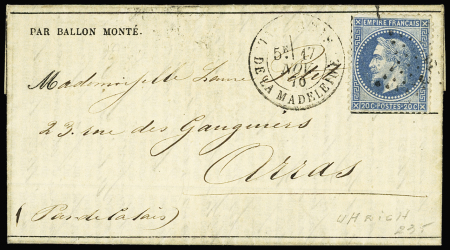 PAR BALLON MONTÉ.
5E 17
NOV.
70
DE LA MADELEINE
EMPIRE FRANÇAIS
20C POSTES 20C
Mademoiselle
23, rue des Gauguiers
Arras
(Pas de Calais)
UHRICH
235